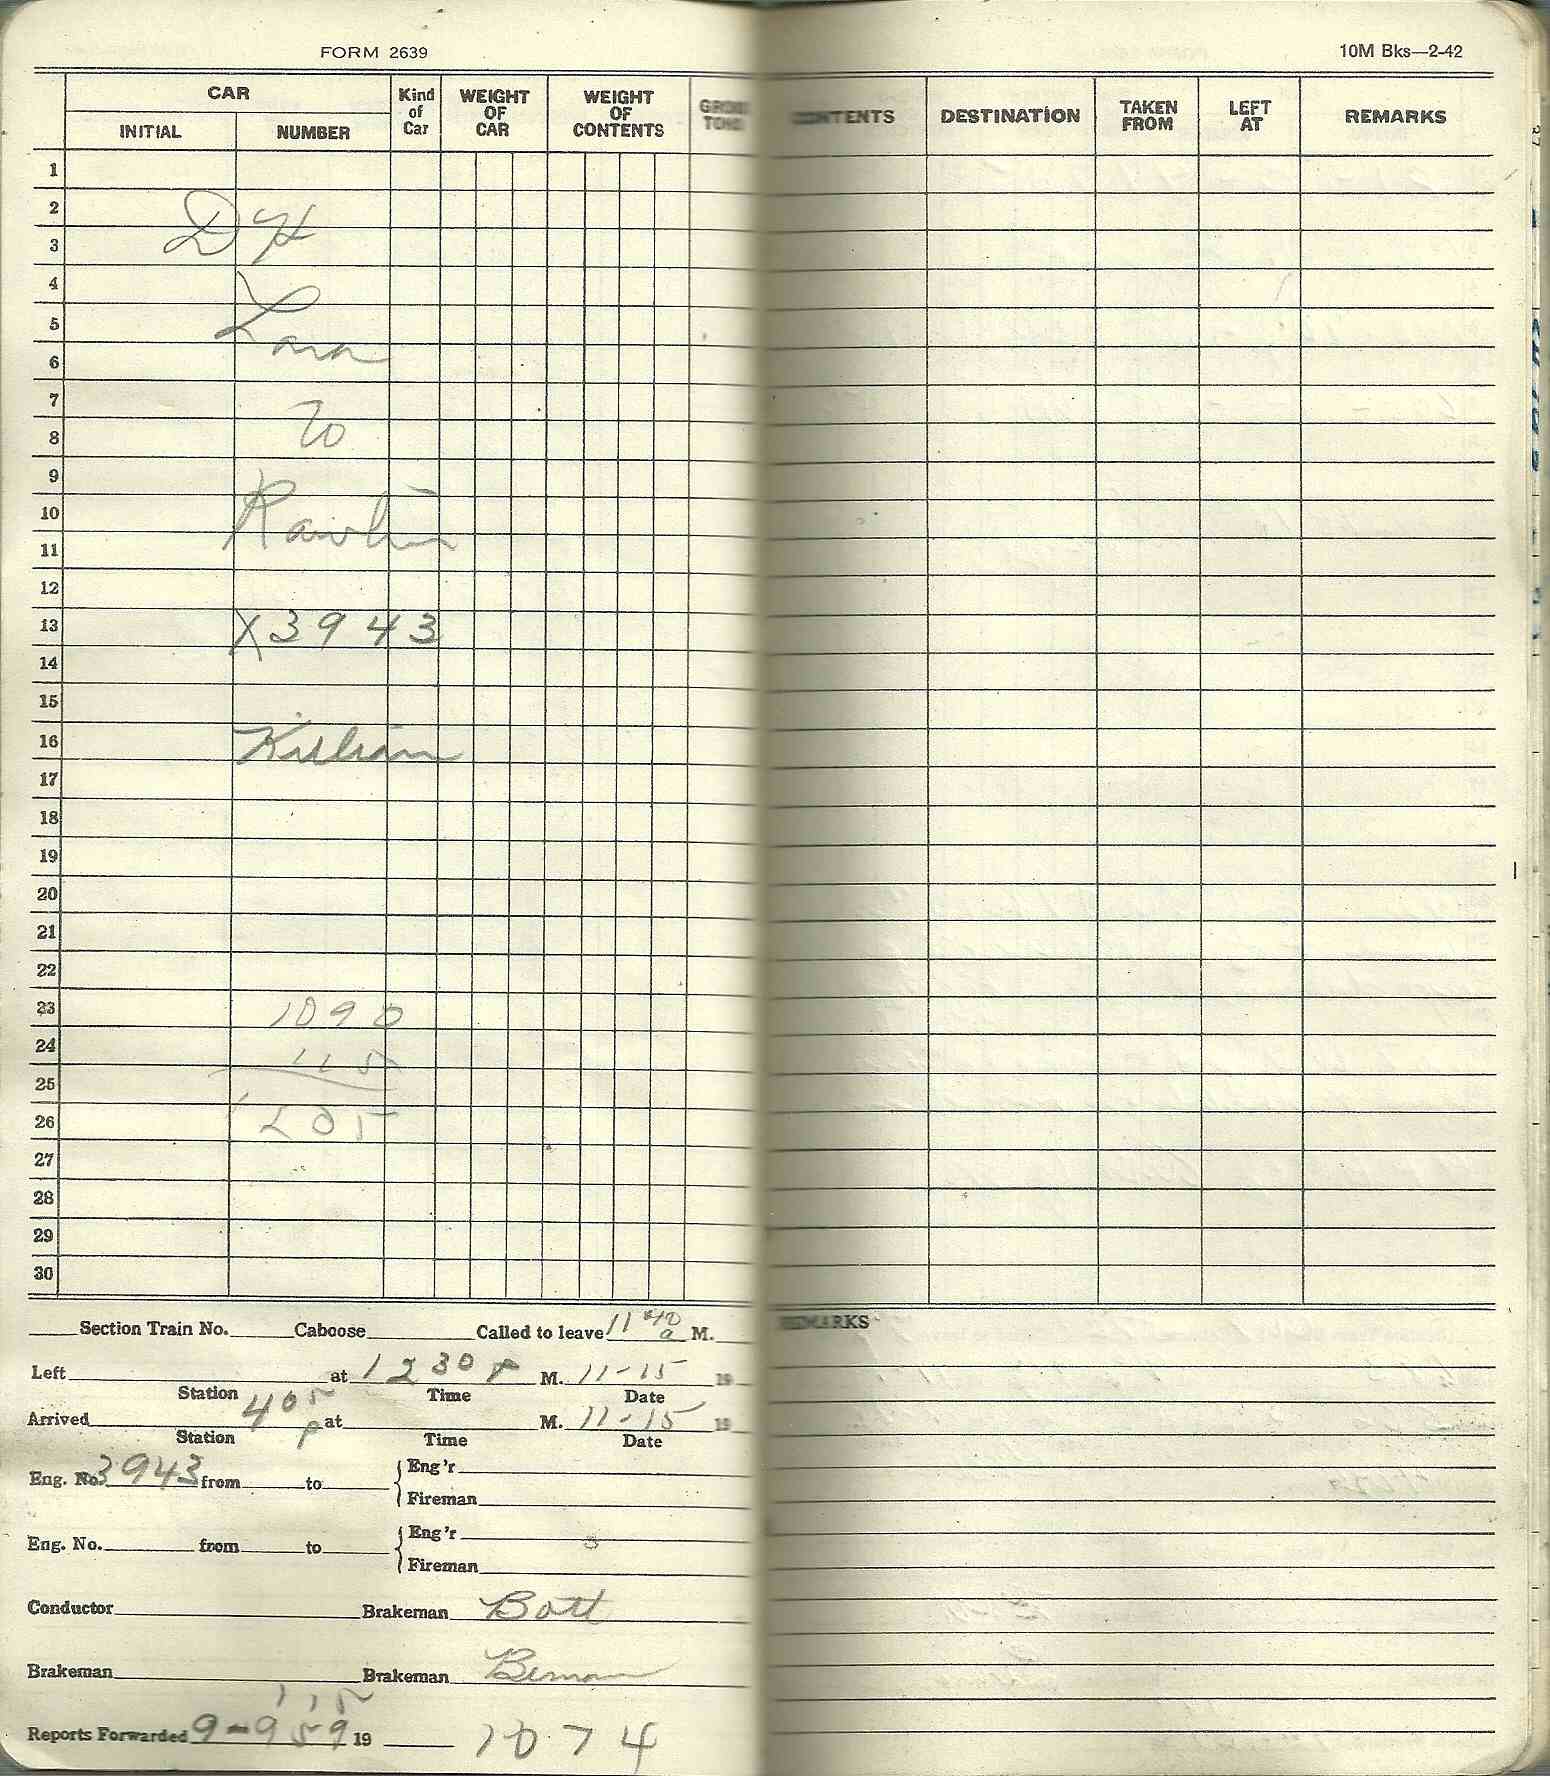 FORM 2639
10M Bks—2-42
CAR
INITIAL NUMBER
Kind of Car
WEIGHT OF CAR
WEIGHT OF CONTENTS
GROSS TONS
CONTENTS
DESTINATION
TAKEN FROM
LEFT AT
REMARKS
1
2
3 DH
4
5
6 Lara
7
8 To
9
10
11 Rawlin
12
13 X3943
14
15
16 Killian
17
18
19
20
21
22
23 1090
24 115
25
26 1205
27
28
29
30
Section Train No. Caboose Called to leave 11 40 a M.
Left at 12 30 p M. 11-15 19
Station Time Date
Arrived 4 05 p at M. 11-15 19
Station Time Date
Eng. No. 3943 from to Eng'r
Fireman
Eng. No. from to Eng'r
Fireman
Conductor Brakeman Bott
Brakeman Brakeman Beman
115
Reports Forwarded 9-959 19 1074
REMARKS